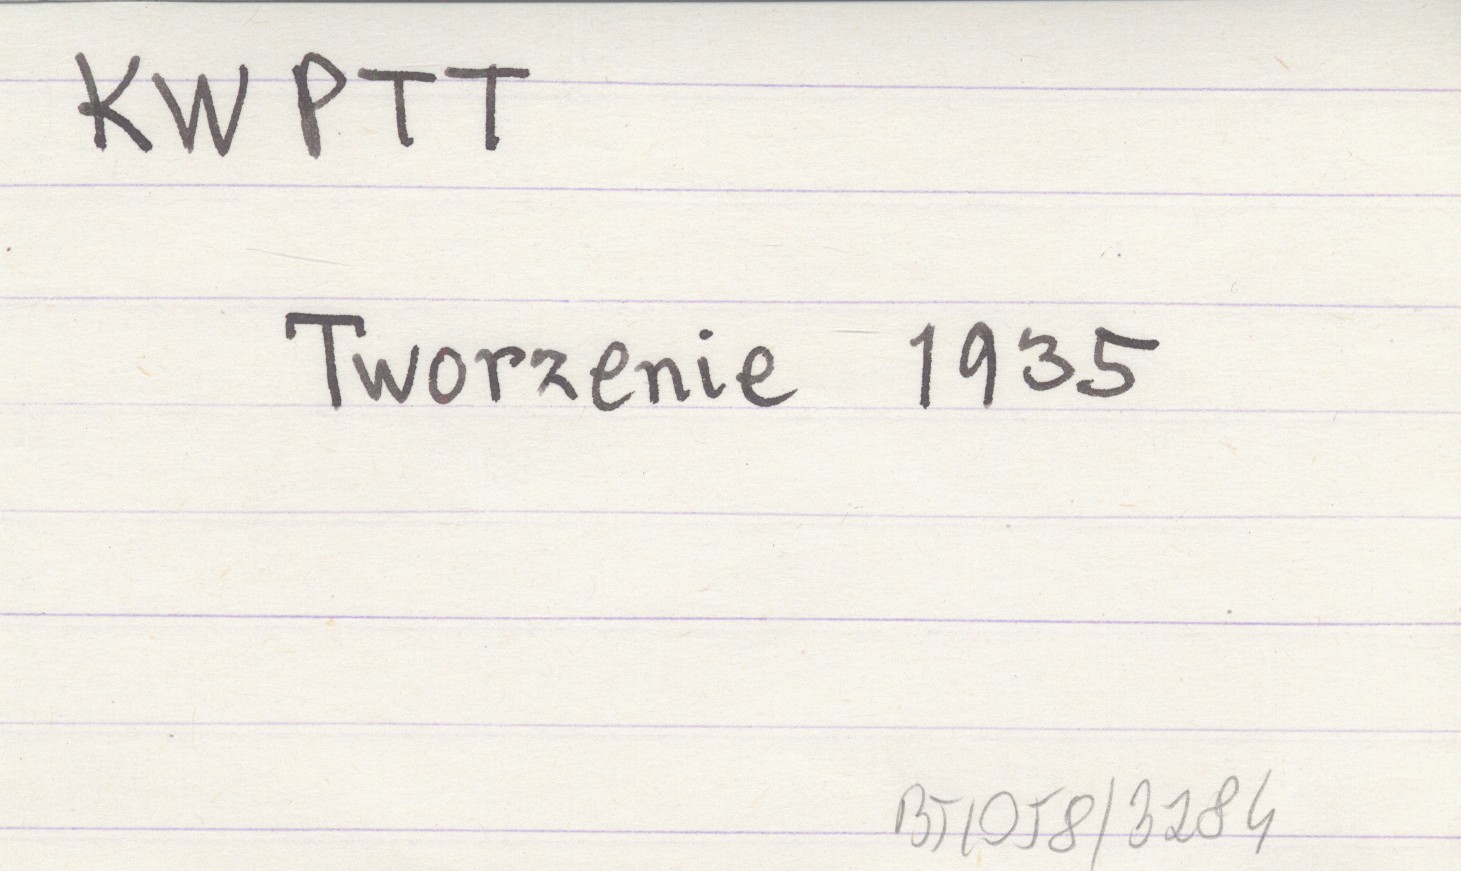 KW PTT
Tworzenie 1935
BT1058/3284